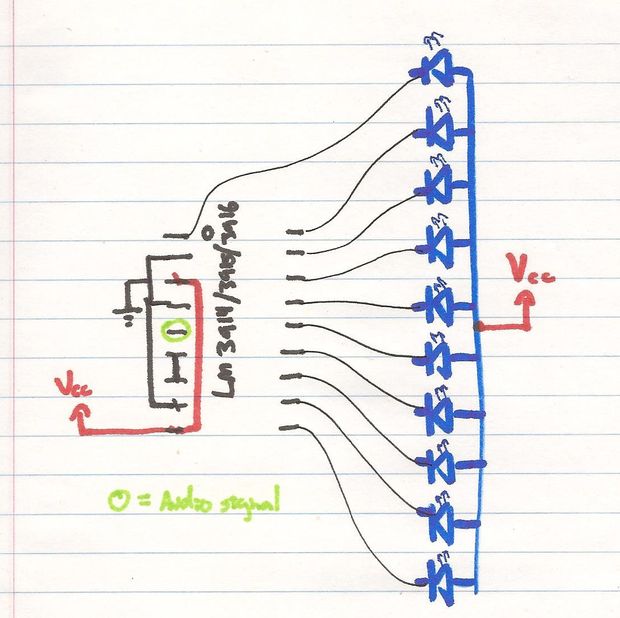 Lm 3914/3915/3916
Vcc
Vcc
= Audio signal